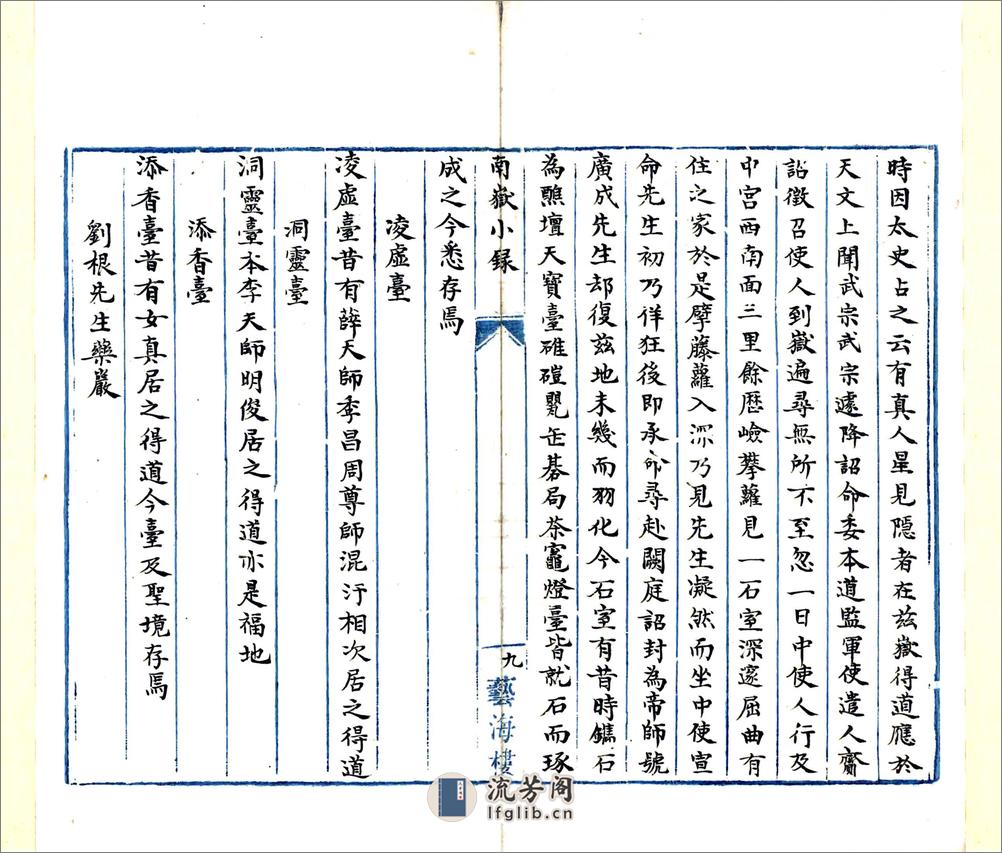 時因太史占之云有真人星見隱者在玆嶽得道應於
天文上聞武宗武宗遽降詔命委本道監軍使遣人齎
詔徵召使人到嶽遍尋無所不至忽一日中使人行及
中宮西南面三里餘歷嶮攀蘿見一石室深邃屈曲有
住之家於是擘藤蘿入深乃見先生凝然而坐中使宣
命先生初乃佯狂後即承命尋赴闕庭詔封為帝師號
廣成先生却復玆地未幾而羽化今石室有昔時鐫石
為醮壇天寶臺碓磑甖缶碁局茶竈燈臺皆就石而琢
南嶽小録
九
藝海樓
成之今悉存焉
凌虛臺
凌虛臺昔有薛天師季昌周尊師混汙相次居之得道
洞靈臺
洞靈臺本李天師明俊居之得道亦是福地
添香臺
添香臺昔有女真居之得道今臺及聖境存焉
劉根先生藥巖
流芳阁
lfglib.cn